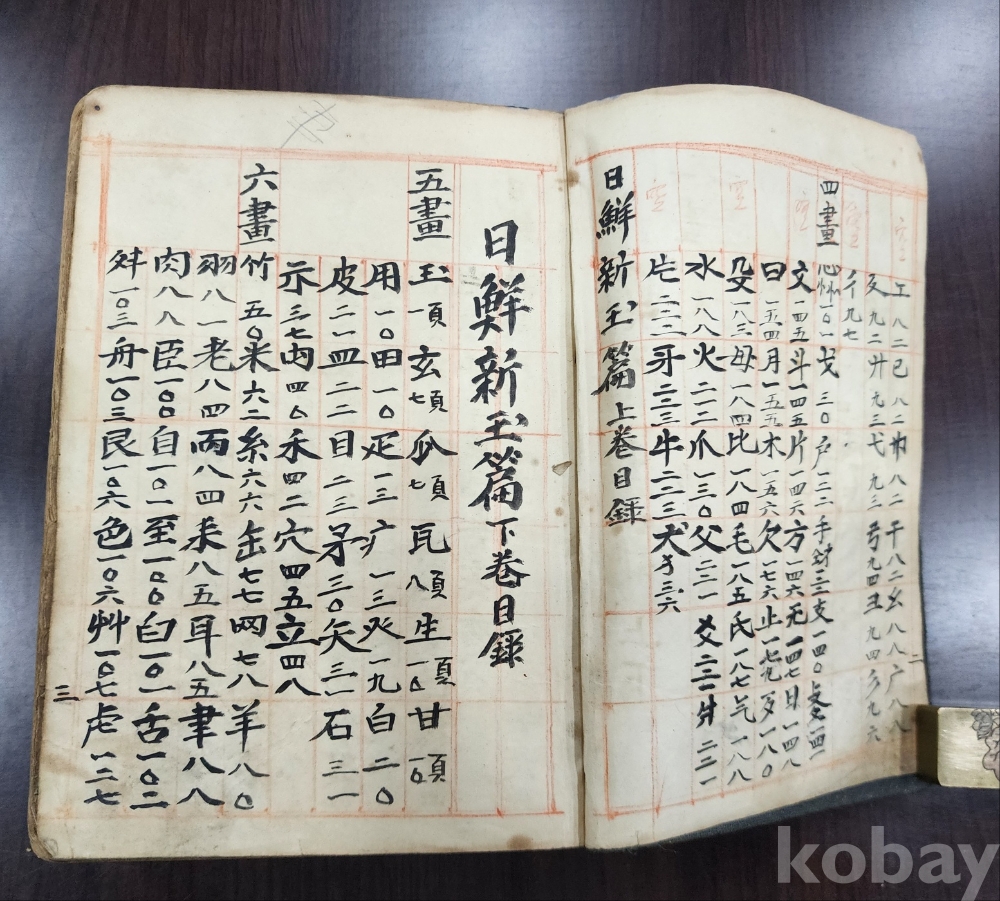 工八二己八二巾八二干八二幺八八广八八
廴九二廾九三弋九三弓九四彐九四彡九六
彳九七
四畫 心忄一〇一戈三〇戶一二二手扌三三支一四〇攴攵一四一
文一四五斗一四五斤一四六方一四六无一四七日一四八
曰一五四月一五五木一五六欠一七六止一七九歹一八〇
殳一八三毋一八四比一八四毛一八五氏一八七气一八八
水一八八火二一二爪一三〇父二三一爻二三一爿二三一
片二三二牙二三三牛二三三犬犭二三六
日鮮新玉篇上卷目録
二
日鮮新玉篇下卷目録
五畫 玉一頁玄七頁瓜七頁瓦八頁生一〇頁甘一〇頁
用一〇田一〇疋一三疒一三癶一九白二〇
皮二一皿二二目二三矛三〇矢三一石三一
示三七禸四〇禾四二穴四五立四八
六畫 竹五〇米六二糸六六缶七七网七八羊八〇
羽八一老八四而八四耒八五耳八五聿八八
肉八八臣一〇〇自一〇一至一〇〇臼一〇一舌一〇二
舛一〇三舟一〇三艮一〇六色一〇六艸一〇七虍一二七
三
空
空
空
空
kobay